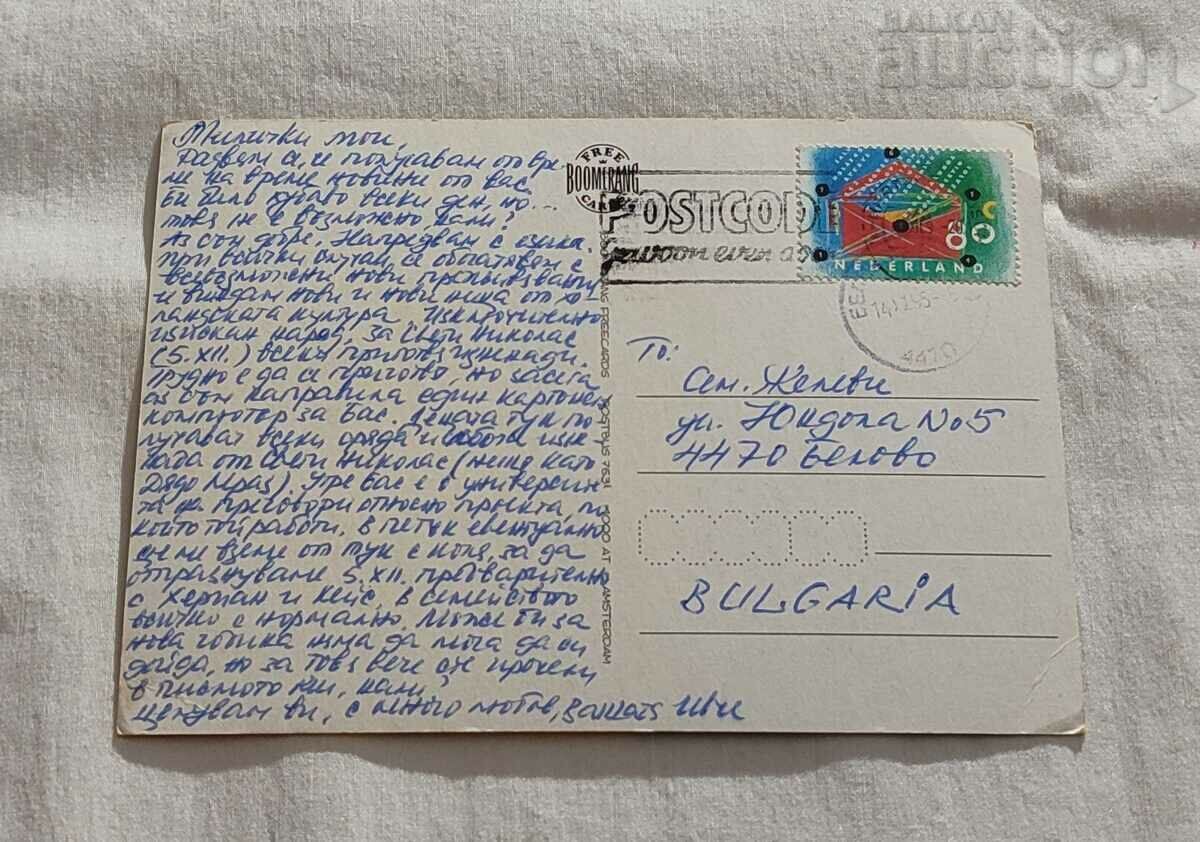 Милички мои,
Радвам се, че получавам от вре-
ме на време новини от вас.
Би било хубаво всеки ден, но...
това не е възможно, нали?
Аз съм добре. Напредвам с езика,
при всички случаи се обогатявам с
всевъзможни нови преживявания
и виждам нови и нови неща от хо-
ландската култура. Изключително
изискан народ, за Свети Николас
(5.XII.) всеки приготвя изненади.
Трудно е да се приготвя, но засега
аз съм направила един картонен
компютър за вас. Децата тук по-
лучават всеки сряда и събота изне-
нада от Свети Николас (нещо като
Дядо Мраз). Утре Бас е в универси-
та да преговори относно проекта, по
който той работи. В петък евентуално
ще ни вземе от тук с коля, за да
отпразнуваме 5.XII. предварително
с Херман и Кейс. В семейството
всичко е нормално. Може би за
нова година няма да мога да си
дойда, но за това вече сте прочели
в писмото ми, нали?
Целувам ви, с много любов, Вашата Иви
FREE
BOOMERANG
CARDS
POSTCODE
woon even a
NEDERLAND
80
4470
BOOMERANG FREECARDS POSTBUS 7531 1000 AT AMSTERDAM
То:
Сем. Желеви
ул. Юндола No 5
4470 Белово
BULGARIA
BALKAN